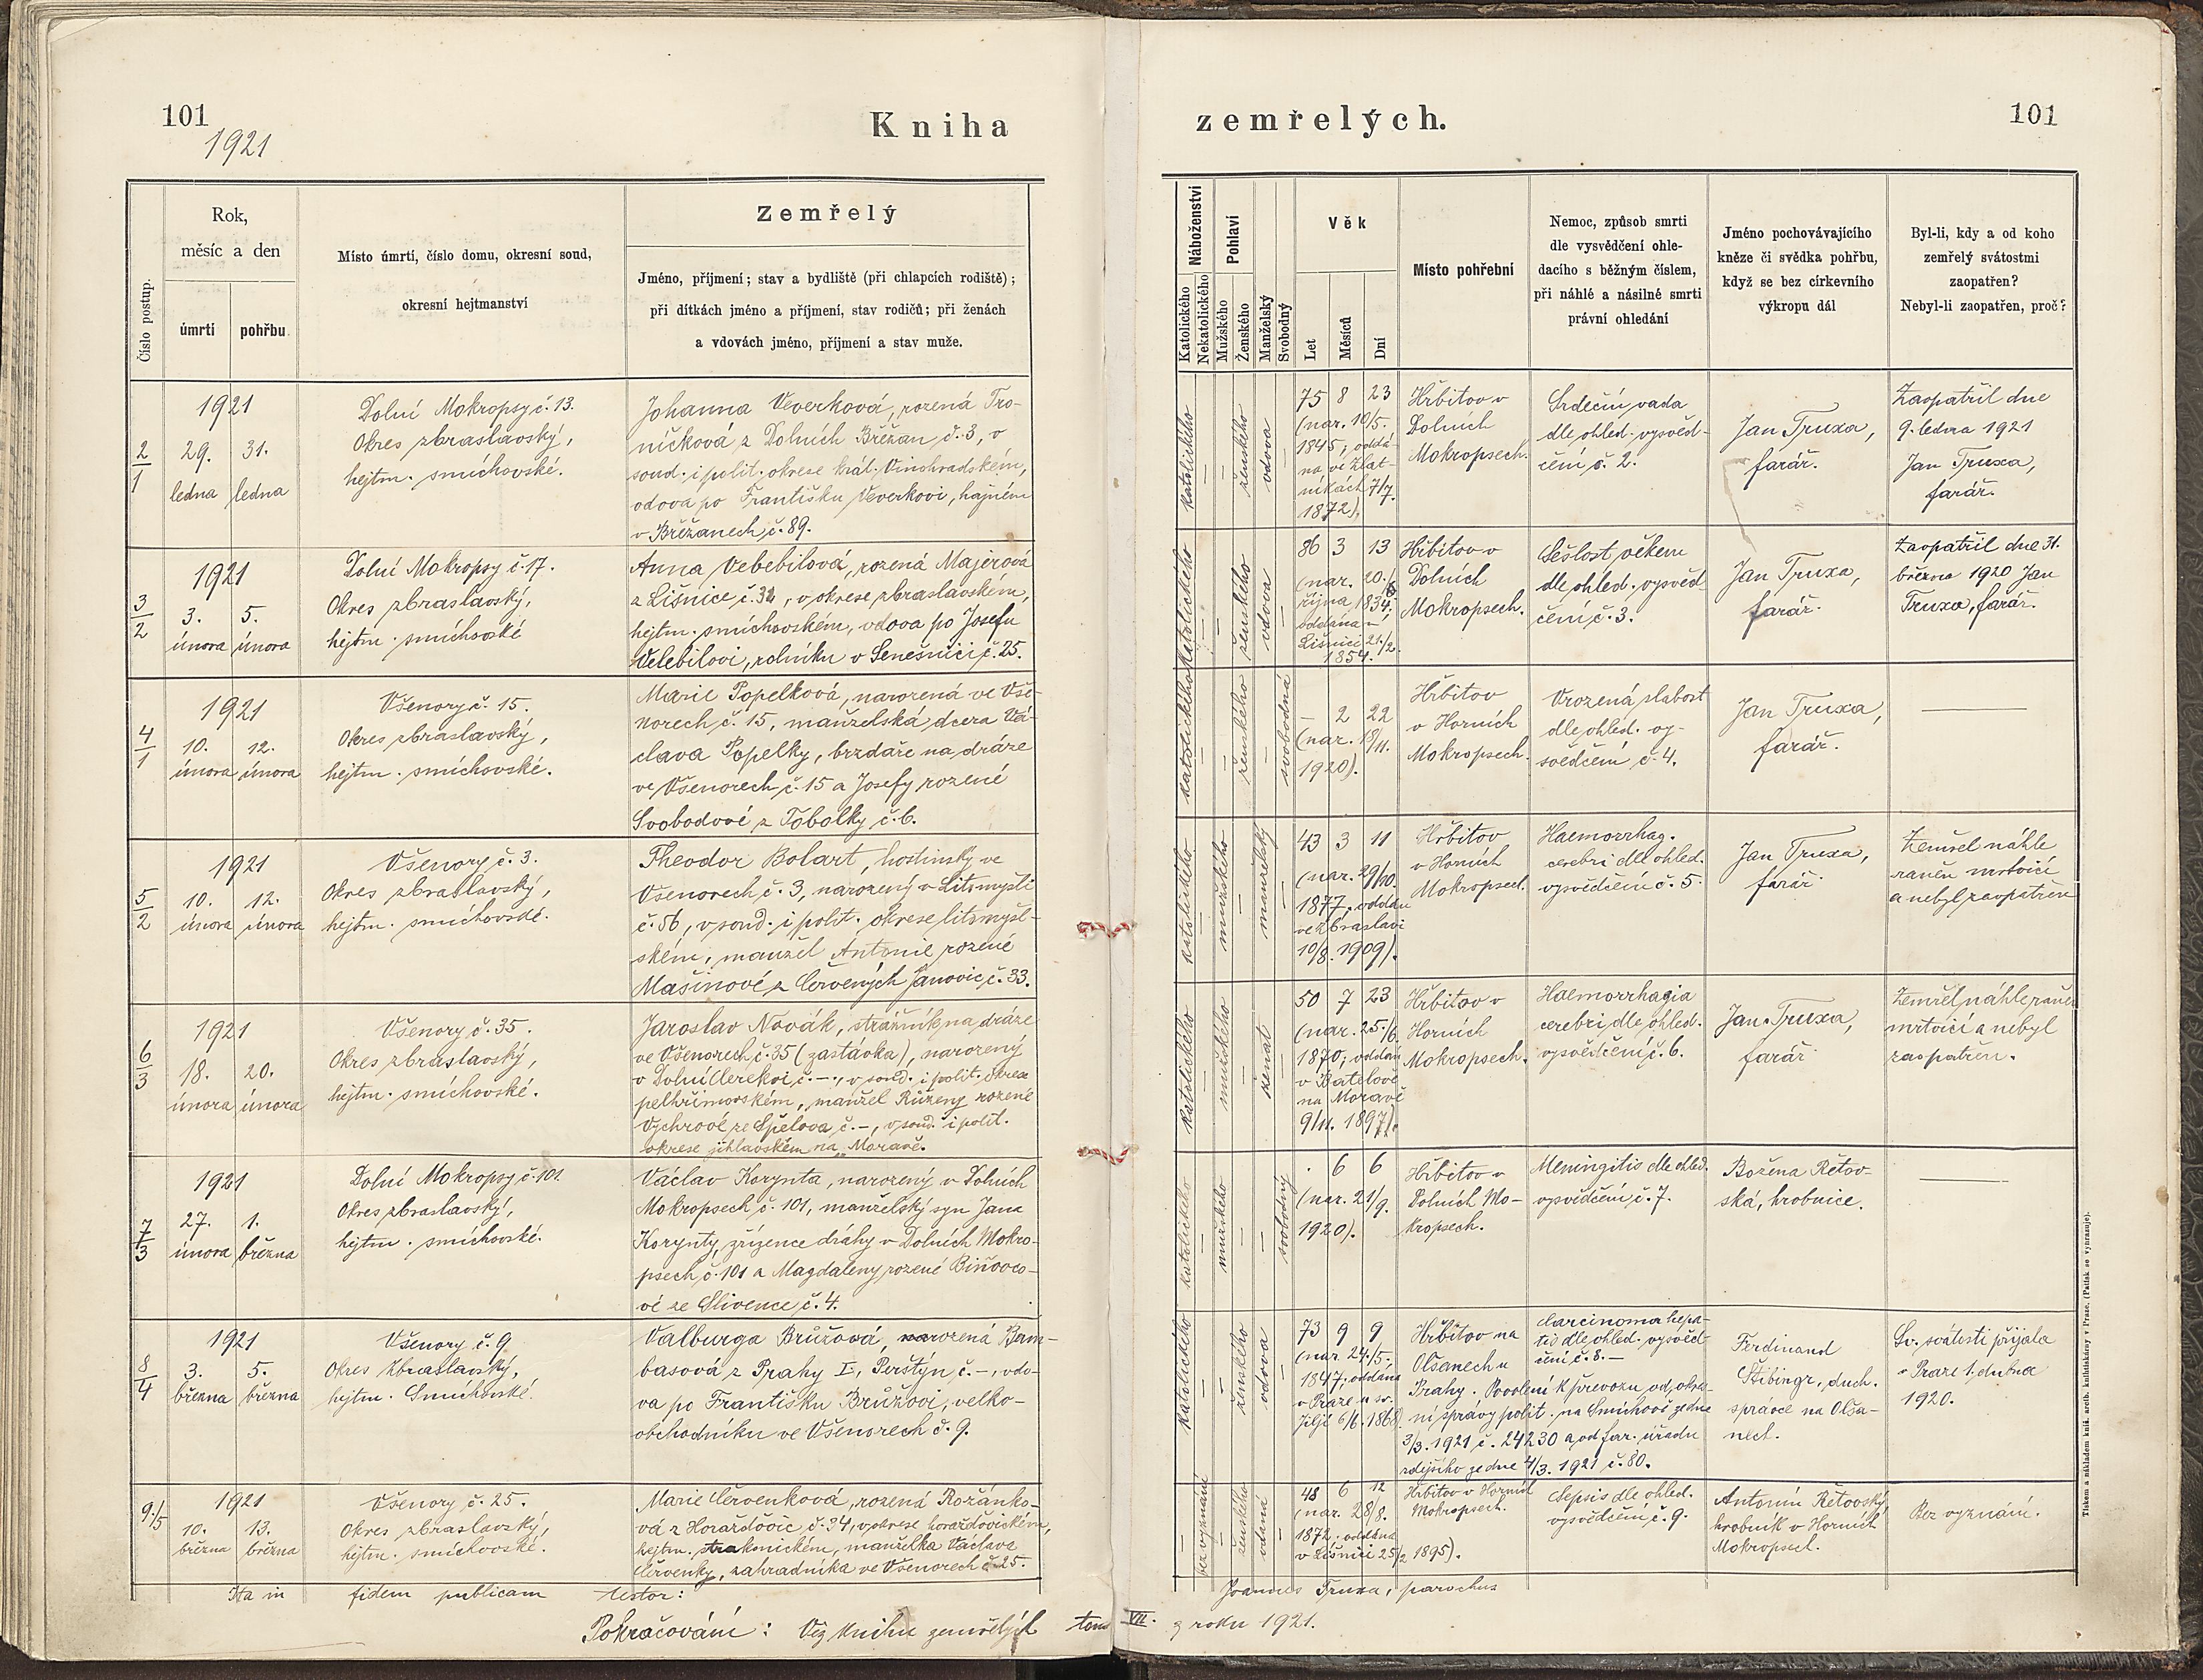 101
1921
Kniha
zemřelých.
101
Číslo postup.
Rok,
měsíc a den
úmrtí
pohřbu
Místo úmrtí, číslo domu, okresní soud,
okresní hejtmanství
Zemřelý
Jméno, příjmení; stav a bydliště (při chlapcích rodiště);
při dítkách jméno a příjmení, stav rodičů; při ženách
a vdovách jméno, příjmení a stav muže.
Náboženství
Katolického
Nekatolického
Pohlaví
Mužského
Ženského
Manželský
Svobodný
Věk
Let
Měsíců
Dní
Místo pohřební
Nemoc, způsob smrti
dle vysvědčení ohle-
dacího s běžným číslem,
při náhlé a násilné smrti
právní ohledání
Jméno pochovávajícího
kněze či svědka pohřbu,
když se bez církevního
výkropu dál
Byl-li, kdy a od koho
zemřelý svátostmi
zaopatřen?
Nebyl-li zaopatřen, proč?
2/1
1921
29. 31.
ledna ledna
Dolní Mokropsy č. 13.
Okres zbraslavský,
hejtm. smíchovské.
Johanna Veverková, rozená Tro-
níčková z Dolních Břežan č. 3, v
soud. i polit. okrese král. Vinohradském,
vdova po Františku Veverkovi, hajném
v Břežanech č. 89.
katolického
—
—
ženského
vdova
—
75 8 23
(nar. 10/5.
1845; oddá-
na ve Zlat-
níkách 7/7.
1872).
Hřbitov v
Dolních
Mokropsech.
Srdeční vada
dle ohled. vysvěd-
čení č. 2.
Jan Truxa,
farář.
Zaopatřil dne
9. ledna 1921
Jan Truxa,
farář.
3/2
1921
3. 5.
února února
Dolní Mokropsy č. 17.
Okres zbraslavský,
hejtm. smíchovské
Anna Velebilová, rozená Majerová
z Líšnice č. 32, v okrese zbraslavském,
hejtm. smíchovském, vdova po Josefu
Velebilovi, rolníku v Senešnici č. 25.
katolického
—
—
ženského
vdova
—
86 3 13
(nar. 20./
října 1834;
oddána v
Líšnici 21./2.
1854.
Hřbitov v
Dolních
Mokropsech.
Sešlost věkem
dle ohled. vysvěd-
čení č. 3.
Jan Truxa,
farář.
Zaopatřil dne 31.
března 1920 Jan
Truxa, farář.
4/1
1921
10. 12.
února února
Všenory č. 15.
Okres zbraslavský,
hejtm. smíchovské.
Marie Popelková, narozená ve Vše-
norech č. 15, manželská dcera Vá-
clava Popelky, brzdaře na dráze
ve Všenorech č. 15 a Josefy rozené
Svobodové z Tobolky č. 6.
katolického
—
—
ženského
—
svobodná
— 2 22
(nar. 18/11.
1920).
Hřbitov
v Horních
Mokropsech.
Vrozená slabost
dle ohled. vy-
svědčení č. 4.
Jan Truxa,
farář.
———
5/2
1921
10. 12.
února února
Všenory č. 3.
Okres zbraslavský,
hejtm. smíchovské.
Theodor Bolart, hostinský ve
Všenorech č. 3, narozený v Litomyšli
č. 56, v soud. i polit. okrese litomyšl-
ském, manžel Antonie rozené
Mašínové z Červených Janovic č. 33.
katolického
—
mužského
—
manželský
—
43 3 11
(nar. 29/10.
1877; oddán
ve Zbraslavi
10/8. 1909).
Hřbitov
v Horních
Mokropsech.
Haemorrhag.
cerebri dle ohled.
vysvědčení č. 5.
Jan Truxa,
farář.
Zemřel náhle
raněn mrtvicí
a nebyl zaopatřen
6/3
1921
18. 20.
února února
Všenory č. 35.
Okres zbraslavský,
hejtm. smíchovské.
Jaroslav Novák, strážník na dráze
ve Všenorech č. 35 (zastávka), narozený
v Dolní Cerekvi č. —, v soud. i polit. okrese
pelhřimovském, manžel Růženy rozené
Vychrové ze Spělova č. —, v soud. i polit.
okrese jihlavském na Moravě.
katolického
—
mužského
—
ženat
—
50 7 23
(nar. 25./6.
1870; oddán
v Batelově
na Moravě
9/11. 1897).
Hřbitov v
Horních
Mokropsech.
Haemorrhagia
cerebri dle ohled.
vysvědčení č. 6.
Jan Truxa,
farář
Zemřel náhle raněn
mrtvicí a nebyl
zaopatřen.
7/3
1921
27. 1.
února března
Dolní Mokropsy č. 101.
Okres zbraslavský,
hejtm. smíchovské.
Václav Korynta, narozený v Dolních
Mokropsech č. 101, manželský syn Jana
Korynty, zřízence dráhy v Dolních Mokro-
psech č. 101 a Magdaleny rozené Biňovco-
vé ze Slivence č. 4.
katolického
—
mužského
—
—
svobodný
. 6 6
(nar. 21/9.
1920).
Hřbitov v
Dolních Mo-
kropsech.
Meningitis dle ohled.
vysvědčení č. 7.
Božena Řetov-
ská, hrobnice.
———
8/4
1921
3. 5.
března března
Všenory č. 9
Okres Zbraslavský,
hejtm. Smíchovské.
Valburga Brůžová, rozená Bam-
basová z Prahy I, Perštýn č. —, vdo-
va po Františku Brůžovi, velko-
obchodníku ve Všenorech č. 9.
katolického
—
—
ženského
vdova
—
73 9 9
(nar. 24./5.
1847; oddána
v Praze u sv.
Jiljí 6/6. 1868)
Hřbitov na
Olšanech u
Prahy. Povolení k převozu od okres-
ní správy polit. na Smíchově ze dne
3/3. 1921 č. 24230 a od far. úřadu
zdejšího ze dne 4/3. 1921 č. 80.
Carcinoma hepa-
tis dle ohled. vysvěd-
čení č. 8. —
Ferdinand
Štibingr, duch.
správce na Olša-
nech.
Sv. svátosti přijala
v Praze 1. dubna
1920.
9./5
1921
10. 13.
března března
Všenory č. 25.
Okres zbraslavský,
hejtm. smíchovské.
Marie Červenková, rozená Rožánko-
vá z Horažďovic č. 34, v okrese horažďovickém,
hejtm. strakonickém, manželka Václava
Červenky, zahradníka ve Všenorech č. 25.
—
bez vyznání
—
ženského
vdaná
—
48 6 12
(nar. 28/8.
1872; oddána
v Líšnici 25/2 1895).
Hřbitov v Horních
Mokropsech.
Sepsis dle ohled.
vysvědčení č. 9.
Antonín Řetovský
hrobník v Horních
Mokropsech.
Bez vyznání.
Ita in fidem publicam testor:
Joannes Truxa, parochus
Pokračování: Viz knihu zemřelých tom VII. z roku 1921.
Tiskem a nákladem kníž. arcib. knihtiskárny v Praze. (Patisk se vyhrazuje).